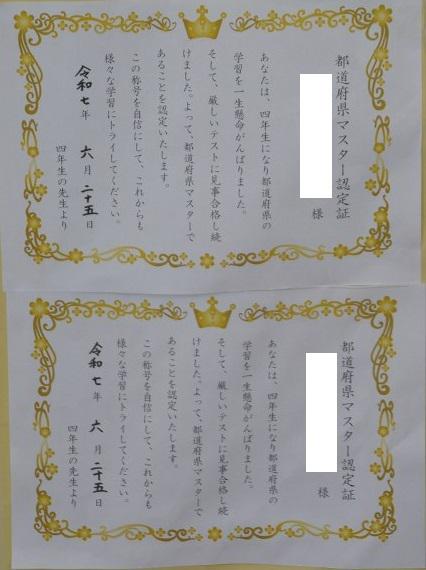 都道府県マスター認定証
様
あなたは、四年生になり都道府県の
学習を一生懸命がんばりました。
そして、厳しいテストに見事合格し続
けました。よって、都道府県マスターで
あることを認定いたします。
この称号を自信にして、これからも
様々な学習にトライしてください。
令和七年 六月 二十五日
四年生の先生より
都道府県マスター認定証
様
あなたは、四年生になり都道府県の
学習を一生懸命がんばりました。
そして、厳しいテストに見事合格し続
けました。よって、都道府県マスターで
あることを認定いたします。
この称号を自信にして、これからも
様々な学習にトライしてください。
令和七年 六月 二十五日
四年生の先生より